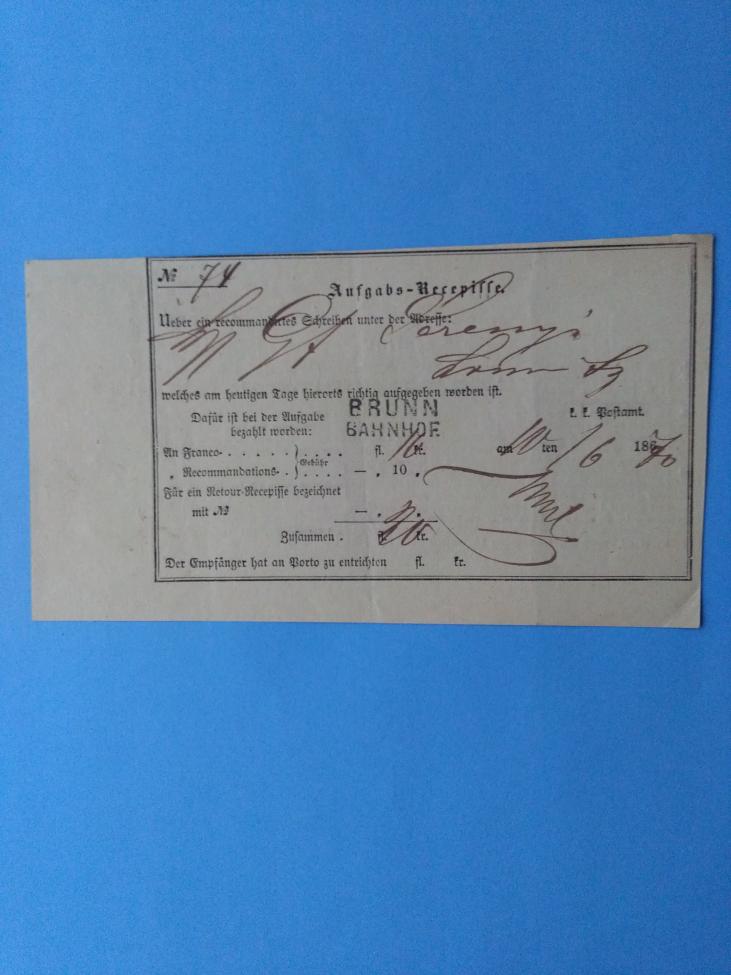 № 74
Aufgabs-Recepisse.
Ueber ein recommandirtes Schreiben unter der Adresse:
welches am heutigen Tage hierorts richtig aufgegeben worden ist.
BRUNN
BAHNHOF.
Dafür ist bei der Aufgabe
bezahlt worden:
k. k. Postamt.
An Franco . . . . . } . . . . fl. kr. am 10 ten /6 1870
„ Recommandations . . } Gebühr . . . . — „ 10 „
Für ein Retour-Recepisse bezeichnet
mit № — „ „
Zusammen . fl. kr.
Der Empfänger hat an Porto zu entrichten fl. kr.